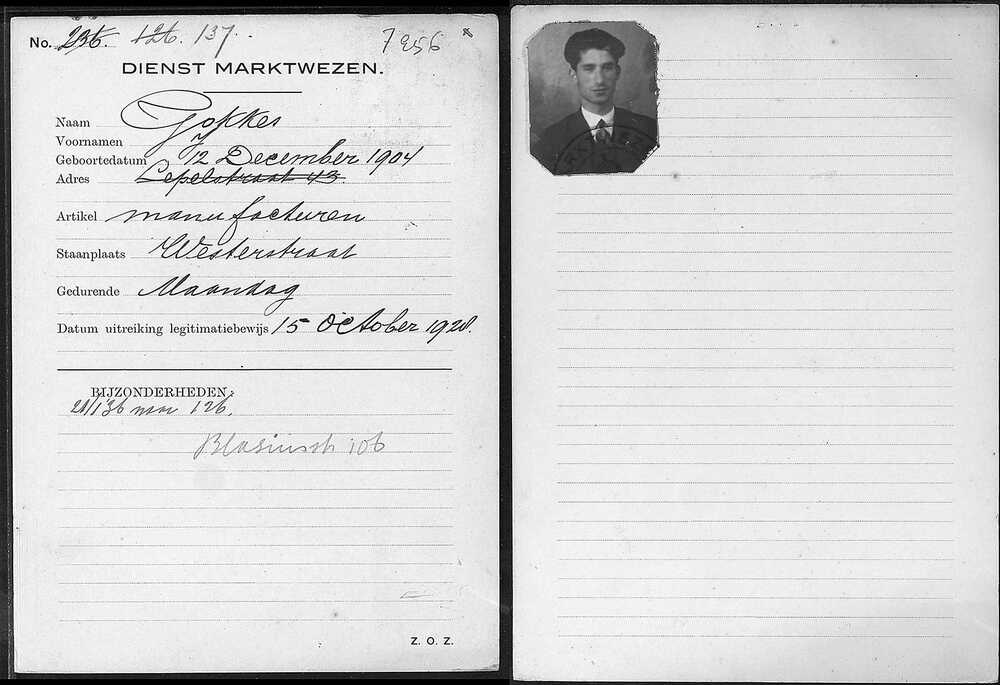 No. 236. 126. 137.
7856
DIENST MARKTWEZEN.
Naam Gokkes
Voornamen J
Geboortedatum 12 December 1904
Adres Lepelstraat 43.
Artikel manufacturen
Staanplaats Westerstraat
Gedurende Maandag
Datum uitreiking legitimatiebewijs 15 October 1928.
BIJZONDERHEDEN:
21/1 36 naar 126.
Blasiusstr 106
Z. O. Z.